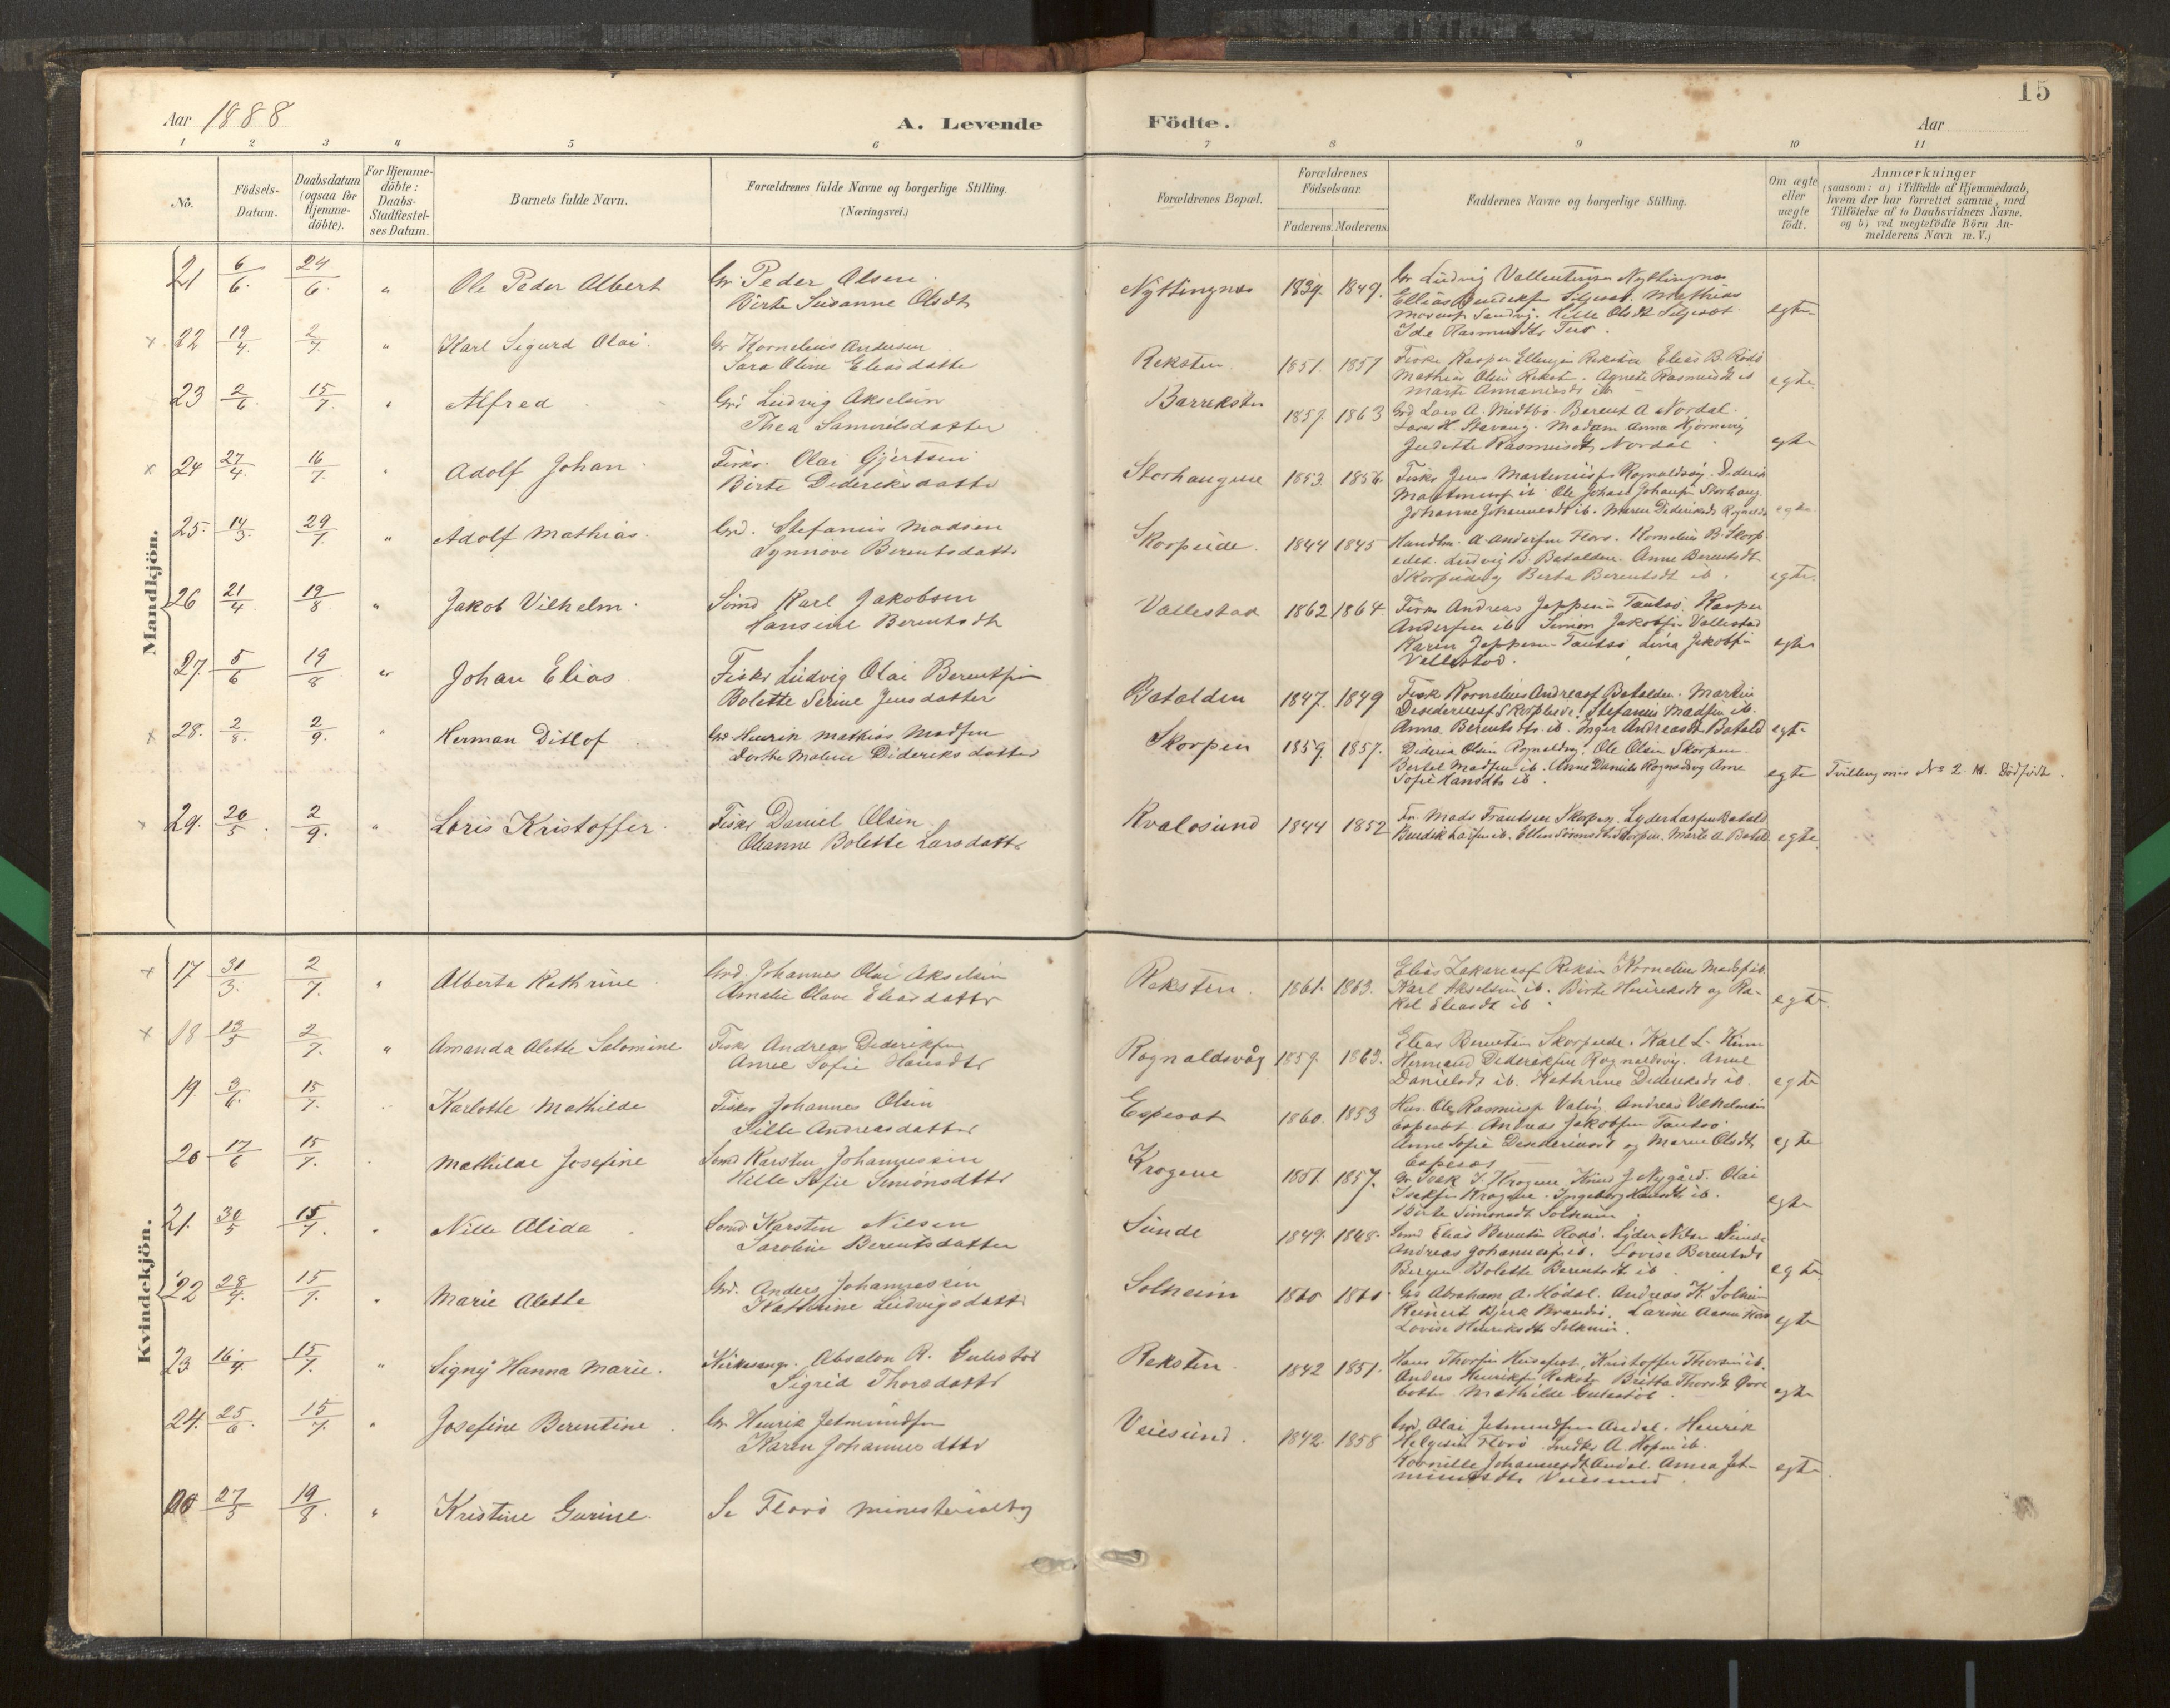 15
Aar 1888
A. Levende Födte.
Aar
1 2 3 4 5 6 7 8 9 10 11
No.
Födsels-
Datum.
Daabsdatum
(ogsaa for
Hjemme-
döbte).
For Hjemme-
döbte:
Daabs-
Stadfæstel-
ses Datum.
Barnets fulde Navn.
Forældrenes fulde Navne og borgerlige Stilling.
(Næringsvei.)
Forældrenes Bopæl.
Forældrenes
Födselsaar.
Faderens. Moderens.
Faddernes Navne og borgerlige Stilling.
Om ægte
eller
uægte
födt.
Anmærkninger
(saasom: a) i Tilfælde af Hjemmedaab,
hvem der har forrettet samme, med
Tilföielse af to Daabsvidners Navne,
og b) ved uægtefödte Börn An-
melderens Navn m. V.)
Mandkjön.
21 6/6. 24/6. " Ole Peder Albert
Gr. Peder Olsen
Birte Susanne Olsdt
Nyttingnes 1839. 1849.
Gr Ludvig Vallentinsen Nyttingnes
Ida Rasmusdtr
egte
x 22 19/4. 2/7. " Karl Sigurd Olai.
Gr Kornelius Andersen
Sara Oline Eliasdatter
Reksten. 1851. 1857
Fisker Kasper Ellingsen Reksten Elias B. Rödö
Mathias Olsen Rekst. Agnete Rasmusdt ib
egte.
23 2/6. 15/7. " Alfred
Grd Ludvig Akselsen
Thea Samuelsdatter
Barreksten 1857. 1863
Grd Lars A. Midtbö. Berent A Nordal.
Lars H. Stavang. Madam Anna Hjörnevig
Judette Rasmusdt Nordal
egte
x 24 27/4. 16/7. " Adolf Johan
Fisker. Olai Gjertsen
Birte Dideriksdatter
Storhaugene 1853. 1856.
Fisker Jens Martinusf Rognaldsvig. Diderik
Martinusf ib. Ole Johan Johansf Storhaug.
Johanne Johannesdt ib. Maren Dideriksdt Rognalds
egte
25. 14/3. 29/7. " Adolf Mathias.
Grd. Stefanus Madsen
Synnöve Berentsdatter
Skorpeide. 1844 1845
Handlm. A. Andersen Florö. Kornelius B. Skorp
eidet. Ludvig B. Batalden. Anne Berentsdt
Skorpeide og Berta Berentsdt ib.
egte.
26 21/4 19/8 " Jakob Vilhelm.
Smd Karl Jakobsen
Hansine Berentsdtr
Vallestad 1862 1864.
Fisker Andreas Jeppesen Tansö. Kasper
Andersen ib. Simon Jakobsen Vallestad
Karen Jeppesen Tansö, Lina Jakobsn
Vallestad.
egte
27. 5/6 19/8 " Johan Elias
Fisker Ludvig Olai Berentsen
Bolette Serine Jensdatter
Batalden 1847. 1849
Fisk Kornelius Andreasf Batalden. Martin
Desideriusf Skorpeide. Stefanus Madsen ib.
Anna Berentsdtr ib. Inger Andreasdt Batald
egte
x 28. 2/8. 2/9. " Herman Ditlof
Grd Henrik Mathias Madsen
Dorthe Malene Dideriksdatter
Skorpen 1859. 1857.
Diderik Olsen Rognaldsvig. Ole Olsen Skorpen.
Bertel Madsen ib. Anne Daniels Rognaldsvig Anne
Sofie Hansdtr ib.
egte Tvilling med No 2. M. Dödfödte.
x 29. 20/5. 2/9. " Loris Kristoffer.
Fisker Daniel Olsen
Oleanne Bolette Larsdatter
Kvalosund 1844 1852
Fr. Mads Frantsen Skorpen. Lyder Larsen Batald
Bendik Larsen ib. Skorpen. Marte A. Batald
egte
Kvindekjön.
x 17 31/3. 2/7. " Alberta Kathrine
Grd. Johannes Olai Akselsen
Amalie Olave Eliasdatter
Reksten. 1861. 1863.
Elias Zakariasf Reksten Kornelius Madsf ib.
Karl Akselsen ib. Birte Henriksdt og Ra-
kel Eliasdt ib.
egte.
x 18 13/5 2/7. " Amanda Alette Salomine
Fisker Andreas Dideriksen
Anne Sofie Hansdtr
Rognaldsvåg 1859. 1863.
Elias Berentsen Skorpeide. Karl L. Kinn
Hermand Dideriksen Rognaldsvig. Anne
Danielsdt ib. Kathrine Dideriksdt ib.
egte
19 3/6. 15/7. Karlotte Mathilde
Fisker Johannes Olsen
Sille Andreasdatter
Espeset 1860. 1853
Hus. Ole Rasmusf Valvig. Andreas Vilhelmsen
Espeset. Andreas Jakobsen Tansö.
Anne Sofie Desideriusdt og Maren Olsdt
Espeset
egte
20 17/6 15/7. Mathilde Josefine
Smd Karsten Johannessen
Hille Sofie Simonsdtr
Krogene 1851. 1857.
Gr Isak J. Krogene Knud J. Nygård. Olai
Isaksen Krogene. Ingeborg Hansdt ib.
Birte Simonsdt Solheim
egte
21. 30/5 15/7. " Nille Alida
Smd Karsten Nilsen
Saroline Berentsdatter
Sunde 1849. 1848.
Smd Elias Berentsen Rödö. Lyder Nilsen Sunde
Andreas Johannesf ib. Lovise Berentsdt
Bergen Bolette Berentsdt ib
egte
22 28/4. 15/7. " Marie Alette
Grd. Anders Johannessen
Kathrine Ludvigsdatter
Solheim 1860 1860
Gr Abraham A. Hödal. Andreas K. Solheim
Reinert Bjerk Brandsö. Larine Aasen Florö
Lovise Henriksdtr Solheim.
egte
23 16/4. 15/7. " Signy Hanna Marie.
Kirkesang. Absalon R. Gulestöl
Sigrid Thorsdatter
Reksten. 1842 1851.
Hans Thorsen Husefest. Kristoffer Thorsen ib.
Anders Henriksen Rekst. Britta Thorsdt Övre
botten Mathilde Gulestöl.
egte
24. 25/6. 15/7. " Josefine Berentine
Gr Henrik Jetmundsen
Karen Johannesdtr
Veiesund. 1842. 1858
Grd Olai Jetmundsen Andal. Henrik
Helgesen Florö. Snedker A. Hopen ib.
Kornille Johannesdt Andal. Anna Jet-
mundsdtr Veiesund.
egte.
27/5 19/8. " Kristine Gurine.
Se Florö ministerialbog